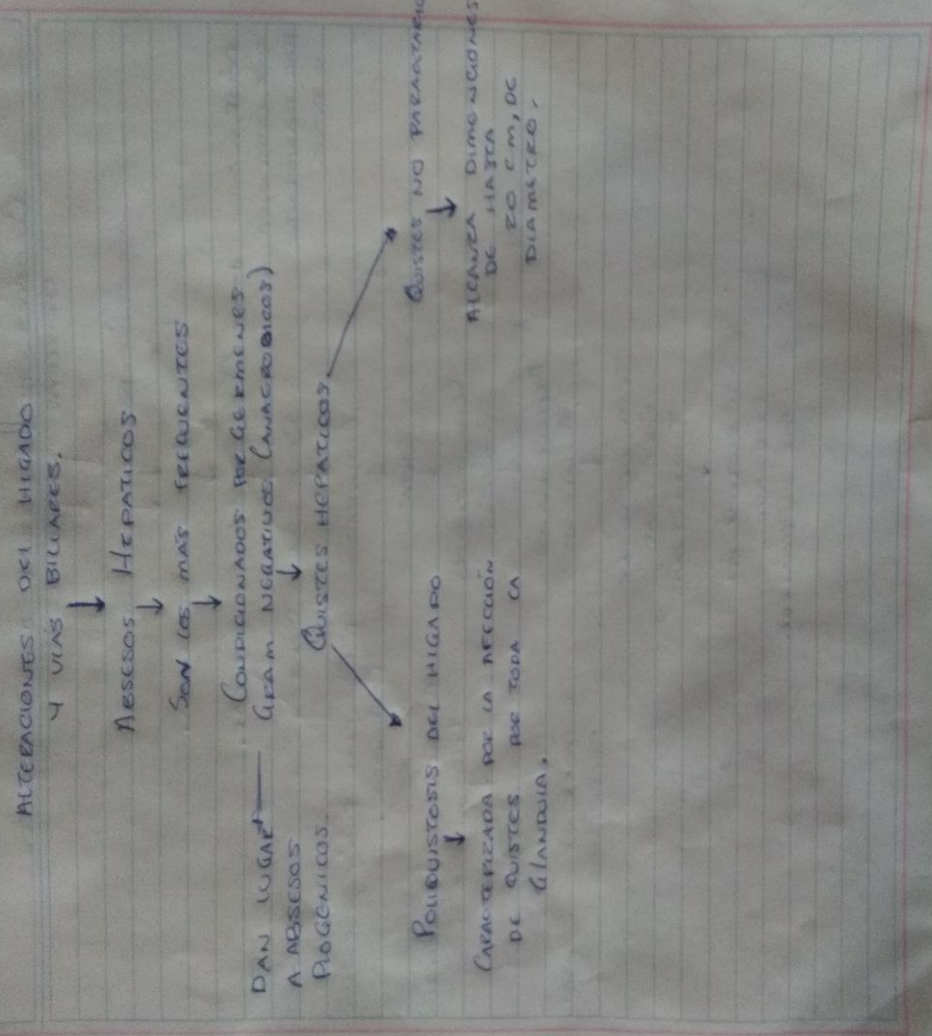 ALTERACIONES DEL HIGADO
Y VIAS BILIARES.
ABSESOS HEPATICOS
SON LOS MAS FRECUENTES
CONDICIONADOS POR GERMENES
GRAM NEGATIVOS (ANAEROBICOS)
DAN LUGAR
A ABSESOS
PIOGENICOS.
QUISTES HEPATICOS.
POLIQUISTOSIS DEL HIGADO
CARACTERIZADA POR LA AFECCIÓN
DE QUISTES POR TODA LA
GLANDULA.
QUISTES NO
ALCANZA DIMENCIONES
DE HASTA
20 CM, DE
DIAMETRO.